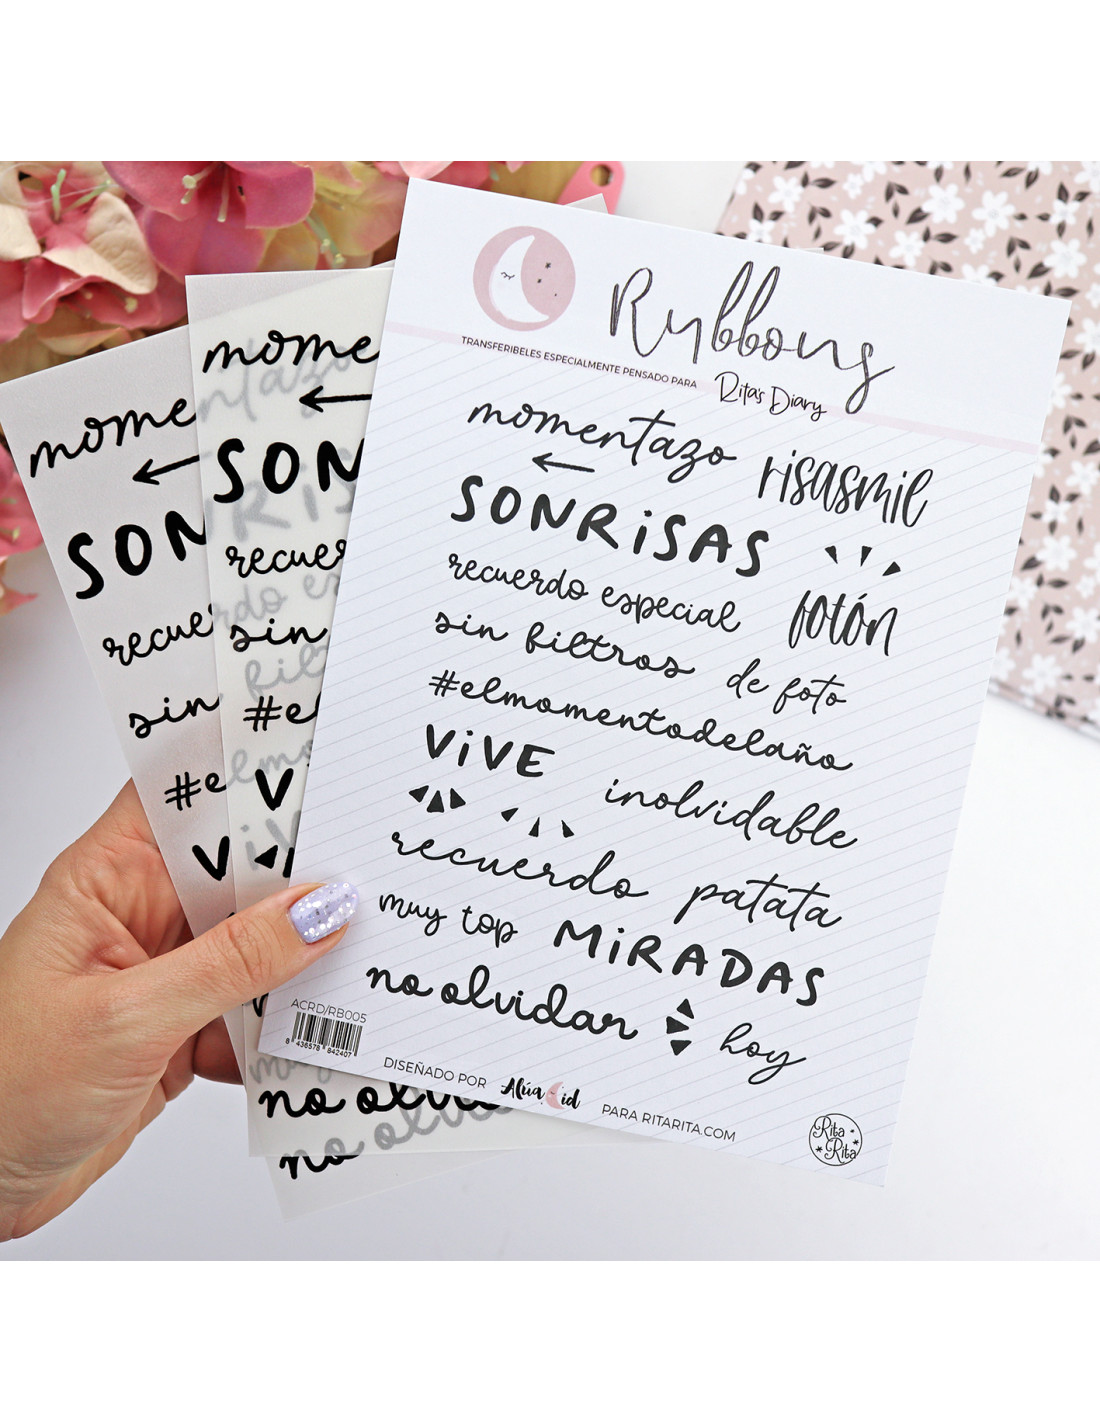 Rybbons
TRANSFERIBELES ESPECIALMENTE PENSADO PARA Rita's Diary
momentazo
risasmil
SONRiSAS
recuerdo especial
fotón
sin filtros
de foto
#elmomentodelaño
ViVE
inolvidable
recuerdo
patata
muy top
MiRADAS
no olvidar
hoy
ACRD/RB005
8 436578 842407
DISEÑADO POR Alúa Cid PARA RITARITA.COM
Rita
Rita
momento
SON
recuer
sin
#el
V
no olvi
mome
SON
recuer
sin
#e
V
no